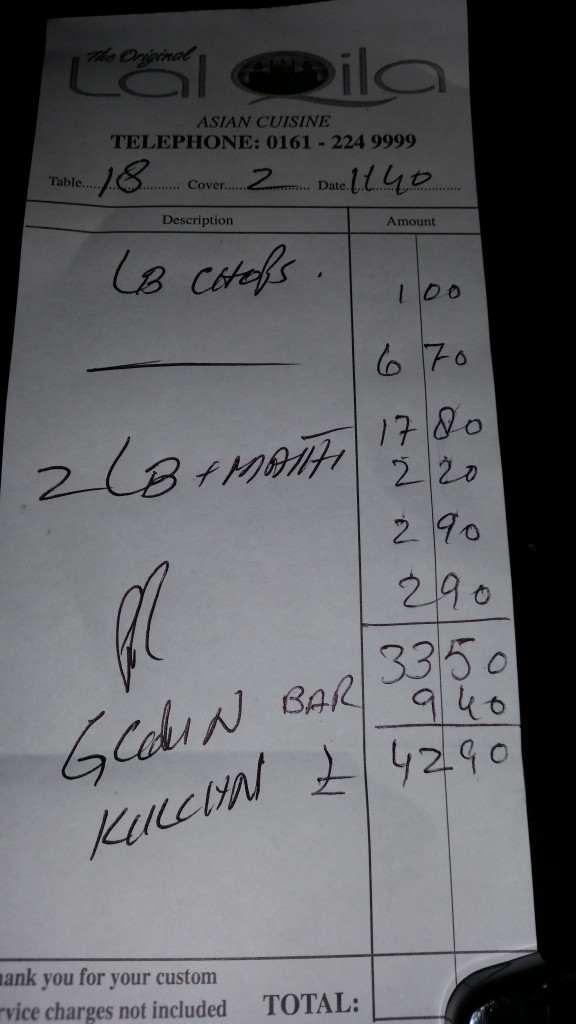 The Original
Lal Qila
ASIAN CUISINE
TELEPHONE: 0161 - 224 9999
Table.....18........... Cover.....2........... Date.1140
Description Amount
LB CHOPS . 1 00
6 70
17 80
2 LB + MATTH 2 20
2 90
2 90
33 50
BAR 9 40
£ 42 90
hank you for your custom
rvice charges not included TOTAL: